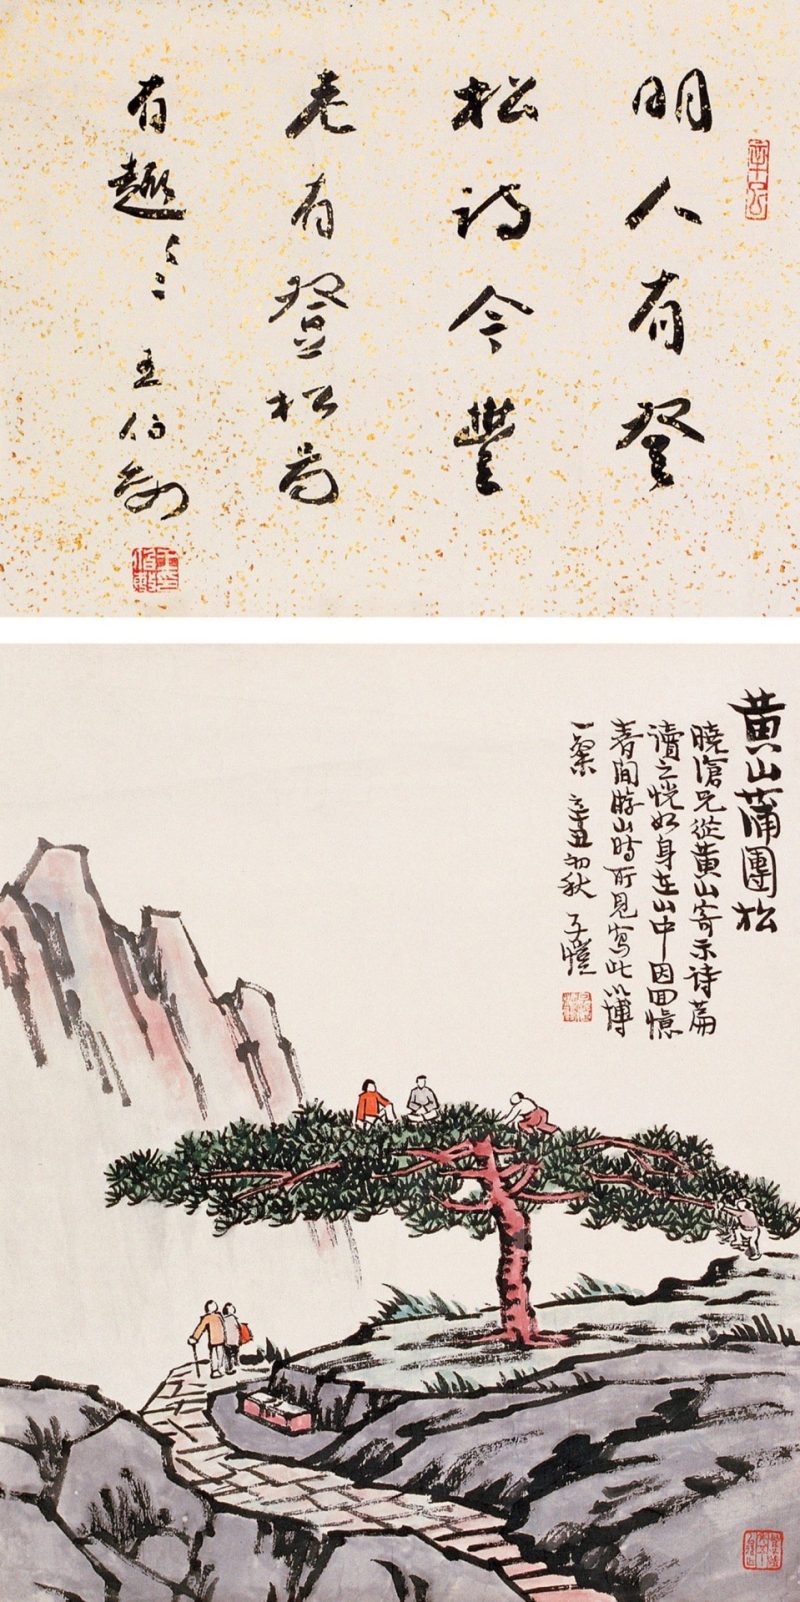 明人有登
松詩今豐
老有登松
有趣
王伯敏
黄山蒲團松
曉滄兄從黄山寄示詩篇
讀之恍如身在山中因回憶
春間游山時所見寫此以博
一粲 辛丑初秋 子愷